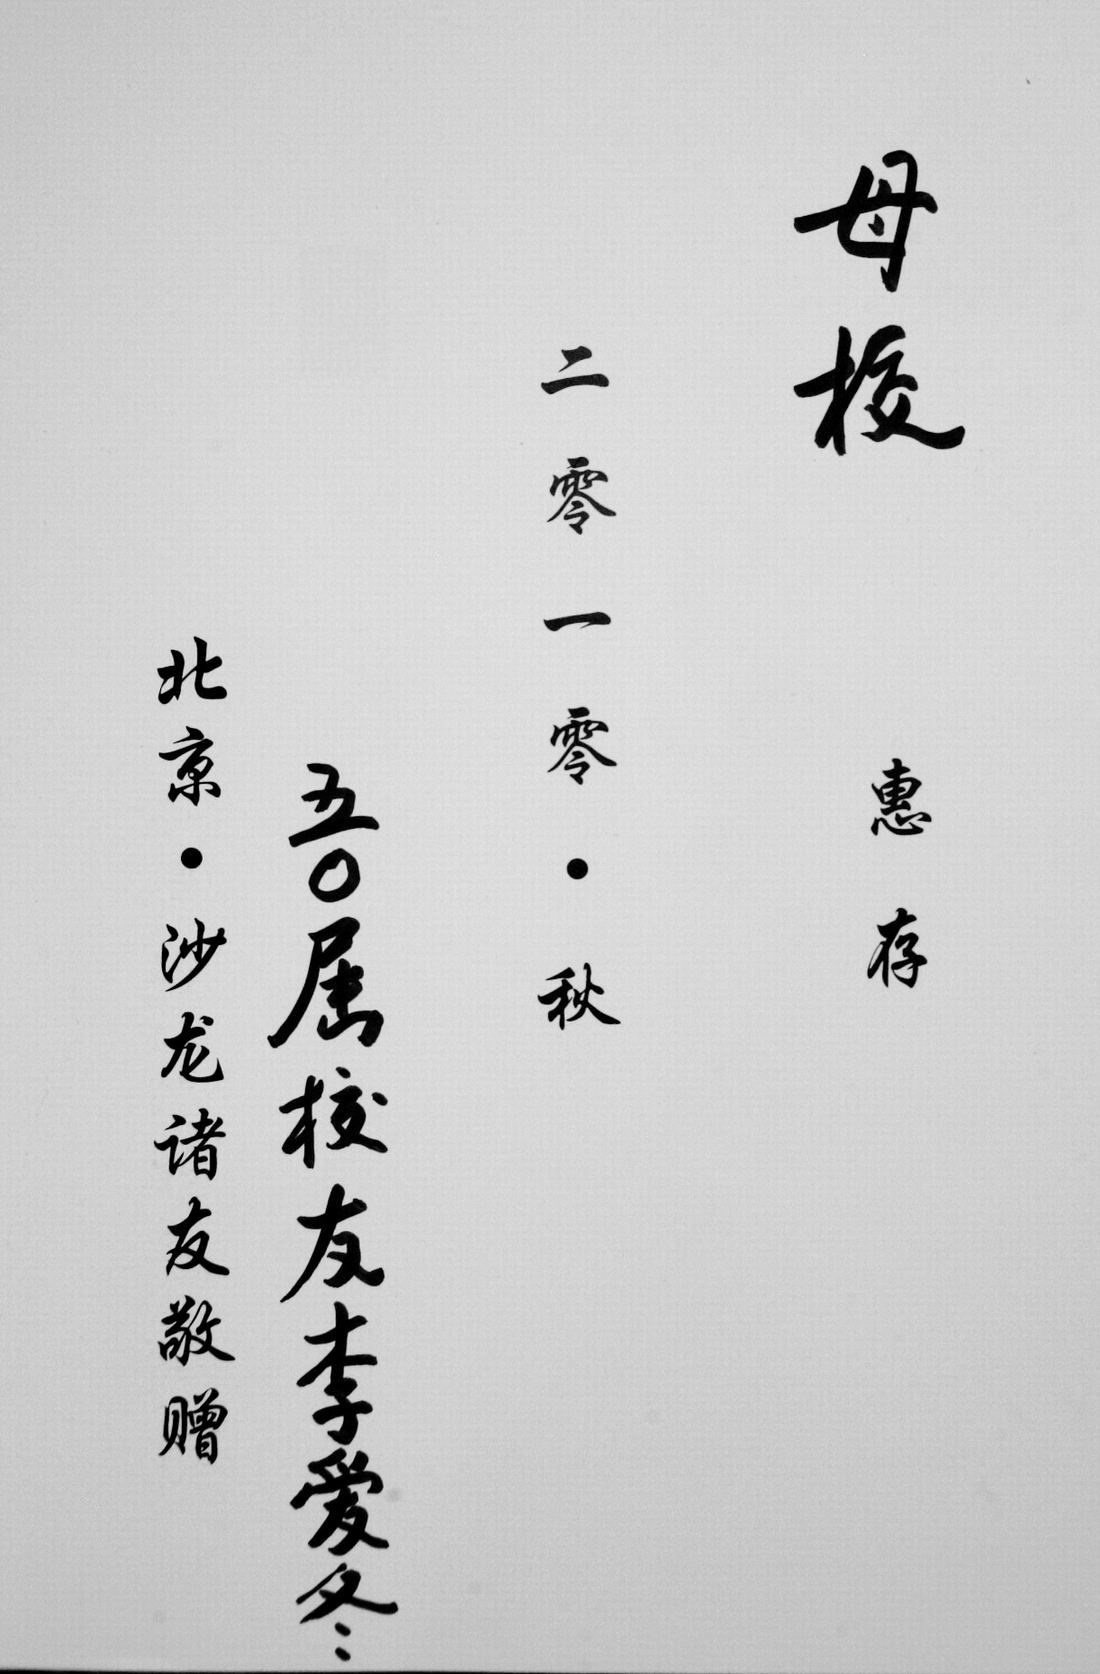 母校 惠存
二零一零·秋
五〇届校友李爱冬
北京·沙龙诸友敬赠